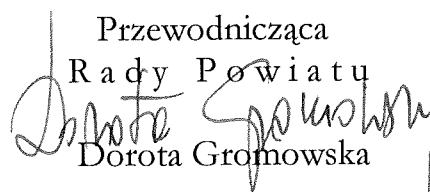 Przewodnicząca
Rady Powiatu
Dorota Gromowska
Dorota Gromowska